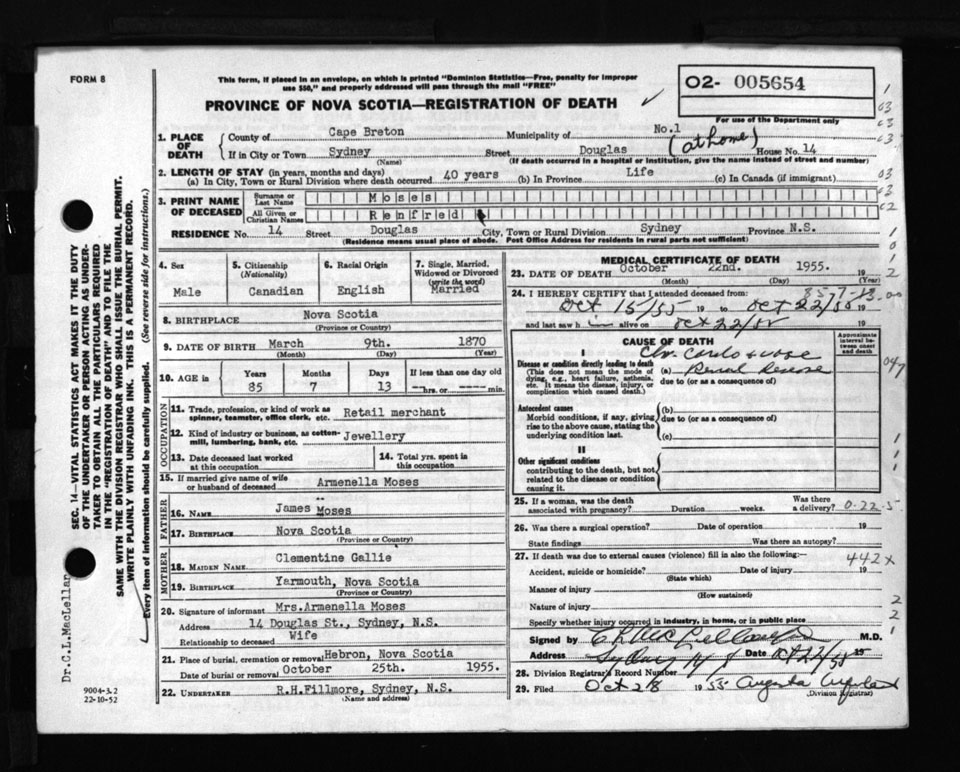 FORM 8
This form, if placed in an envelope, on which is printed "Dominion Statistics—Free, penalty for improper
use $50," and properly addressed will pass through the mail "FREE"
PROVINCE OF NOVA SCOTIA—REGISTRATION OF DEATH
02- 005654
For use of the Department only
1. PLACE OF DEATH County of Cape Breton Municipality of No.1
If in City or Town Sydney Street Douglas (at home) House No. 14
(Name) (If death occurred in a hospital or institution, give the name instead of street and number)
2. LENGTH OF STAY (in years, months and days)
(a) In City, Town or Rural Division where death occurred 40 years (b) In Province Life (c) In Canada (if immigrant)
3. PRINT NAME OF DECEASED Surname or Last Name Moses
All Given or Christian Names Renfred
RESIDENCE No. 14 Street Douglas City, Town or Rural Division Sydney Province N.S.
(Residence means usual place of abode. Post Office Address for residents in rural parts not sufficient)
4. Sex Male
5. Citizenship (Nationality) Canadian
6. Racial Origin English
7. Single, Married, Widowed or Divorced (write the word) Married
8. BIRTHPLACE Nova Scotia
(Province or Country)
9. DATE OF BIRTH March 9th. 1870
(Month) (Day) (Year)
10. AGE in Years 85 Months 7 Days 13 If less than one day old
hrs. or min.
OCCUPATION
11. Trade, profession, or kind of work as spinner, teamster, office clerk, etc. Retail merchant
12. Kind of industry or business, as cotton-mill, lumbering, bank, etc. Jewellery
13. Date deceased last worked at this occupation
14. Total yrs. spent in this occupation
15. If married give name of wife or husband of deceased Armenella Moses
FATHER
16. NAME James Moses
17. BIRTHPLACE Nova Scotia
(Province or Country)
MOTHER
18. MAIDEN NAME Clementine Gallie
19. BIRTHPLACE Yarmouth, Nova Scotia
(Province or Country)
20. Signature of informant Mrs.Armenella Moses
Address 14 Douglas St., Sydney, N.S.
Relationship to deceased Wife
21. Place of burial, cremation or removal Hebron, Nova Scotia
Date of burial or removal October 25th. 1955.
22. UNDERTAKER R.H.Fillmore, Sydney, N.S.
(Name and address)
MEDICAL CERTIFICATE OF DEATH
23. DATE OF DEATH October 22nd. 1955. 19
(Month) (Day) (Year)
24. I HEREBY CERTIFY that I attended deceased from:
Oct 15/55 19 to Oct 22/55 19
and last saw h im alive on Oct 22/55 19
CAUSE OF DEATH
Approximate interval between onset and death
I
Disease or condition directly leading to death
(This does not mean the mode of dying, e.g., heart failure, asthenia, etc. It means the disease, injury, or complication which caused death.)
(a) Renal Disease
due to (or as a consequence of)
Antecedent causes
Morbid conditions, if any, giving rise to the above cause, stating the underlying condition last.
(b)
due to (or as a consequence of)
(c)
II
Other significant conditions
contributing to the death, but not related to the disease or condition causing it.
25. If a woman, was the death associated with pregnancy? Duration weeks. Was there a delivery? 0-22-5
26. Was there a surgical operation? Date of operation 19
State findings Was there an autopsy?
27. If death was due to external causes (violence) fill in also the following:— 442x
Accident, suicide or homicide? Date of injury 19
(State which)
Manner of injury
(How sustained)
Nature of injury
Specify whether injury occurred in industry, in home, or in public place
Signed by M.D.
Address Sydney N S Date Oct 22/55
28. Division Registrar's Record Number
29. Filed Oct 28 1955 Augusta
(Division Registrar)
SEC. 14—VITAL STATISTICS ACT MAKES IT THE DUTY
OF THE UNDERTAKER OR PERSON ACTING AS UNDERTAKER
TO OBTAIN ALL THE PARTICULARS REQUIRED
IN THE "REGISTRATION OF DEATH" AND TO FILE THE
SAME WITH THE DIVISION REGISTRAR WHO SHALL ISSUE THE BURIAL PERMIT.
WRITE PLAINLY WITH UNFADING INK. THIS IS A PERMANENT RECORD.
Every item of information should be carefully supplied. (See reverse side for instructions.)
Dr.C.L.MacLellan
9004-3.2
22-10-52